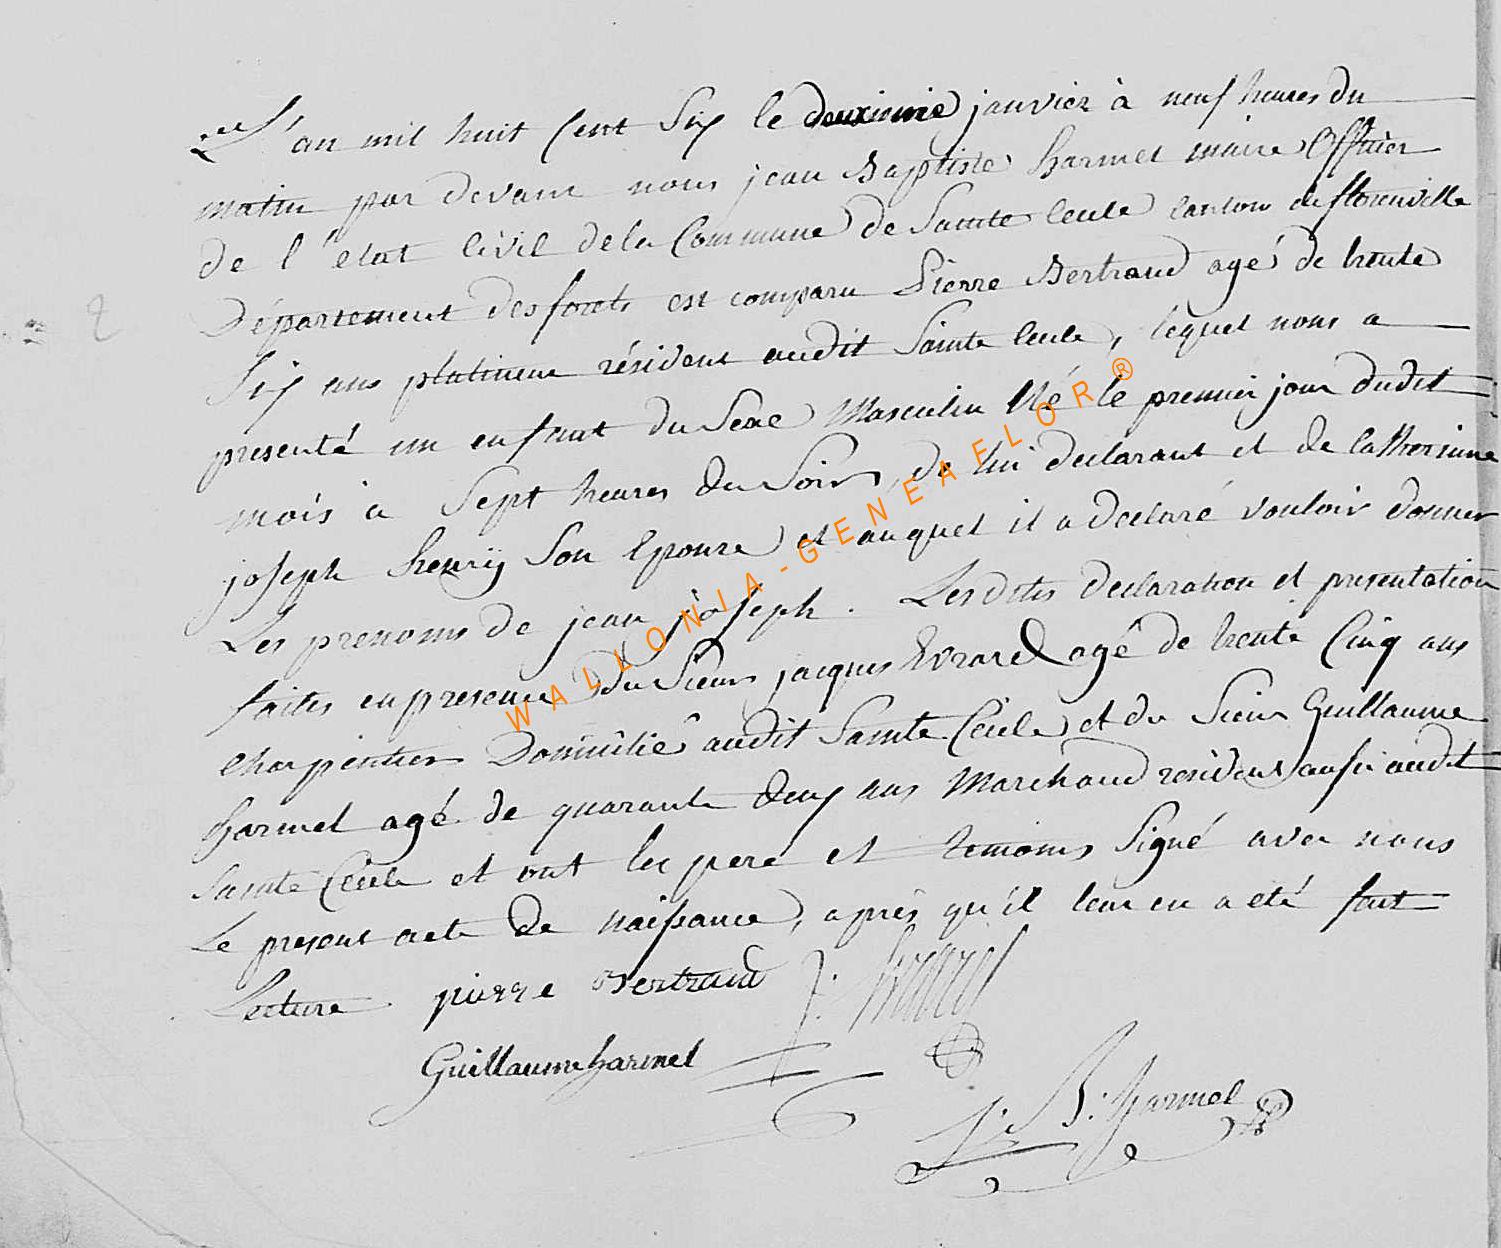 L'an mil huit Cent Six le deuxieme janvier à neuf heures du
matin par devant nous jean Baptiste harmel maire Officier
de l'etat Civil de la Commune de Sainte Cecile canton de florenville
Département des forets est comparu Pierre Bertrand agé de trente
Six ans platineur résident audit Sainte Cecile, lequel nous a
presenté un enfant du Sexe Masculin Né le premier jour dudit
mois à Sept heures du Soir, de lui declarant et de Catherinne
joseph henry Son Epouse et auquel il a declaré vouloir donner
Les prenoms de jean joseph. Lesdites declaration et presentation
faites en presence du Sieur jacques Evrard agé de trente Cinq ans
Charpentier Domicilié audit Sainte Cecile et du Sieur Guillaume
harmel agé de quarante deux ans Marchand resident aussi audit
Sainte Cecile et ont les pere et temoins Signé avec nous
Le present acte de naissance, après qu'il leur en a eté fait
Lecture pierre Bertrand J: Evrard
Guillaume harmel
J: B: harmel
2
WALLONIA-GENEAFLOR®